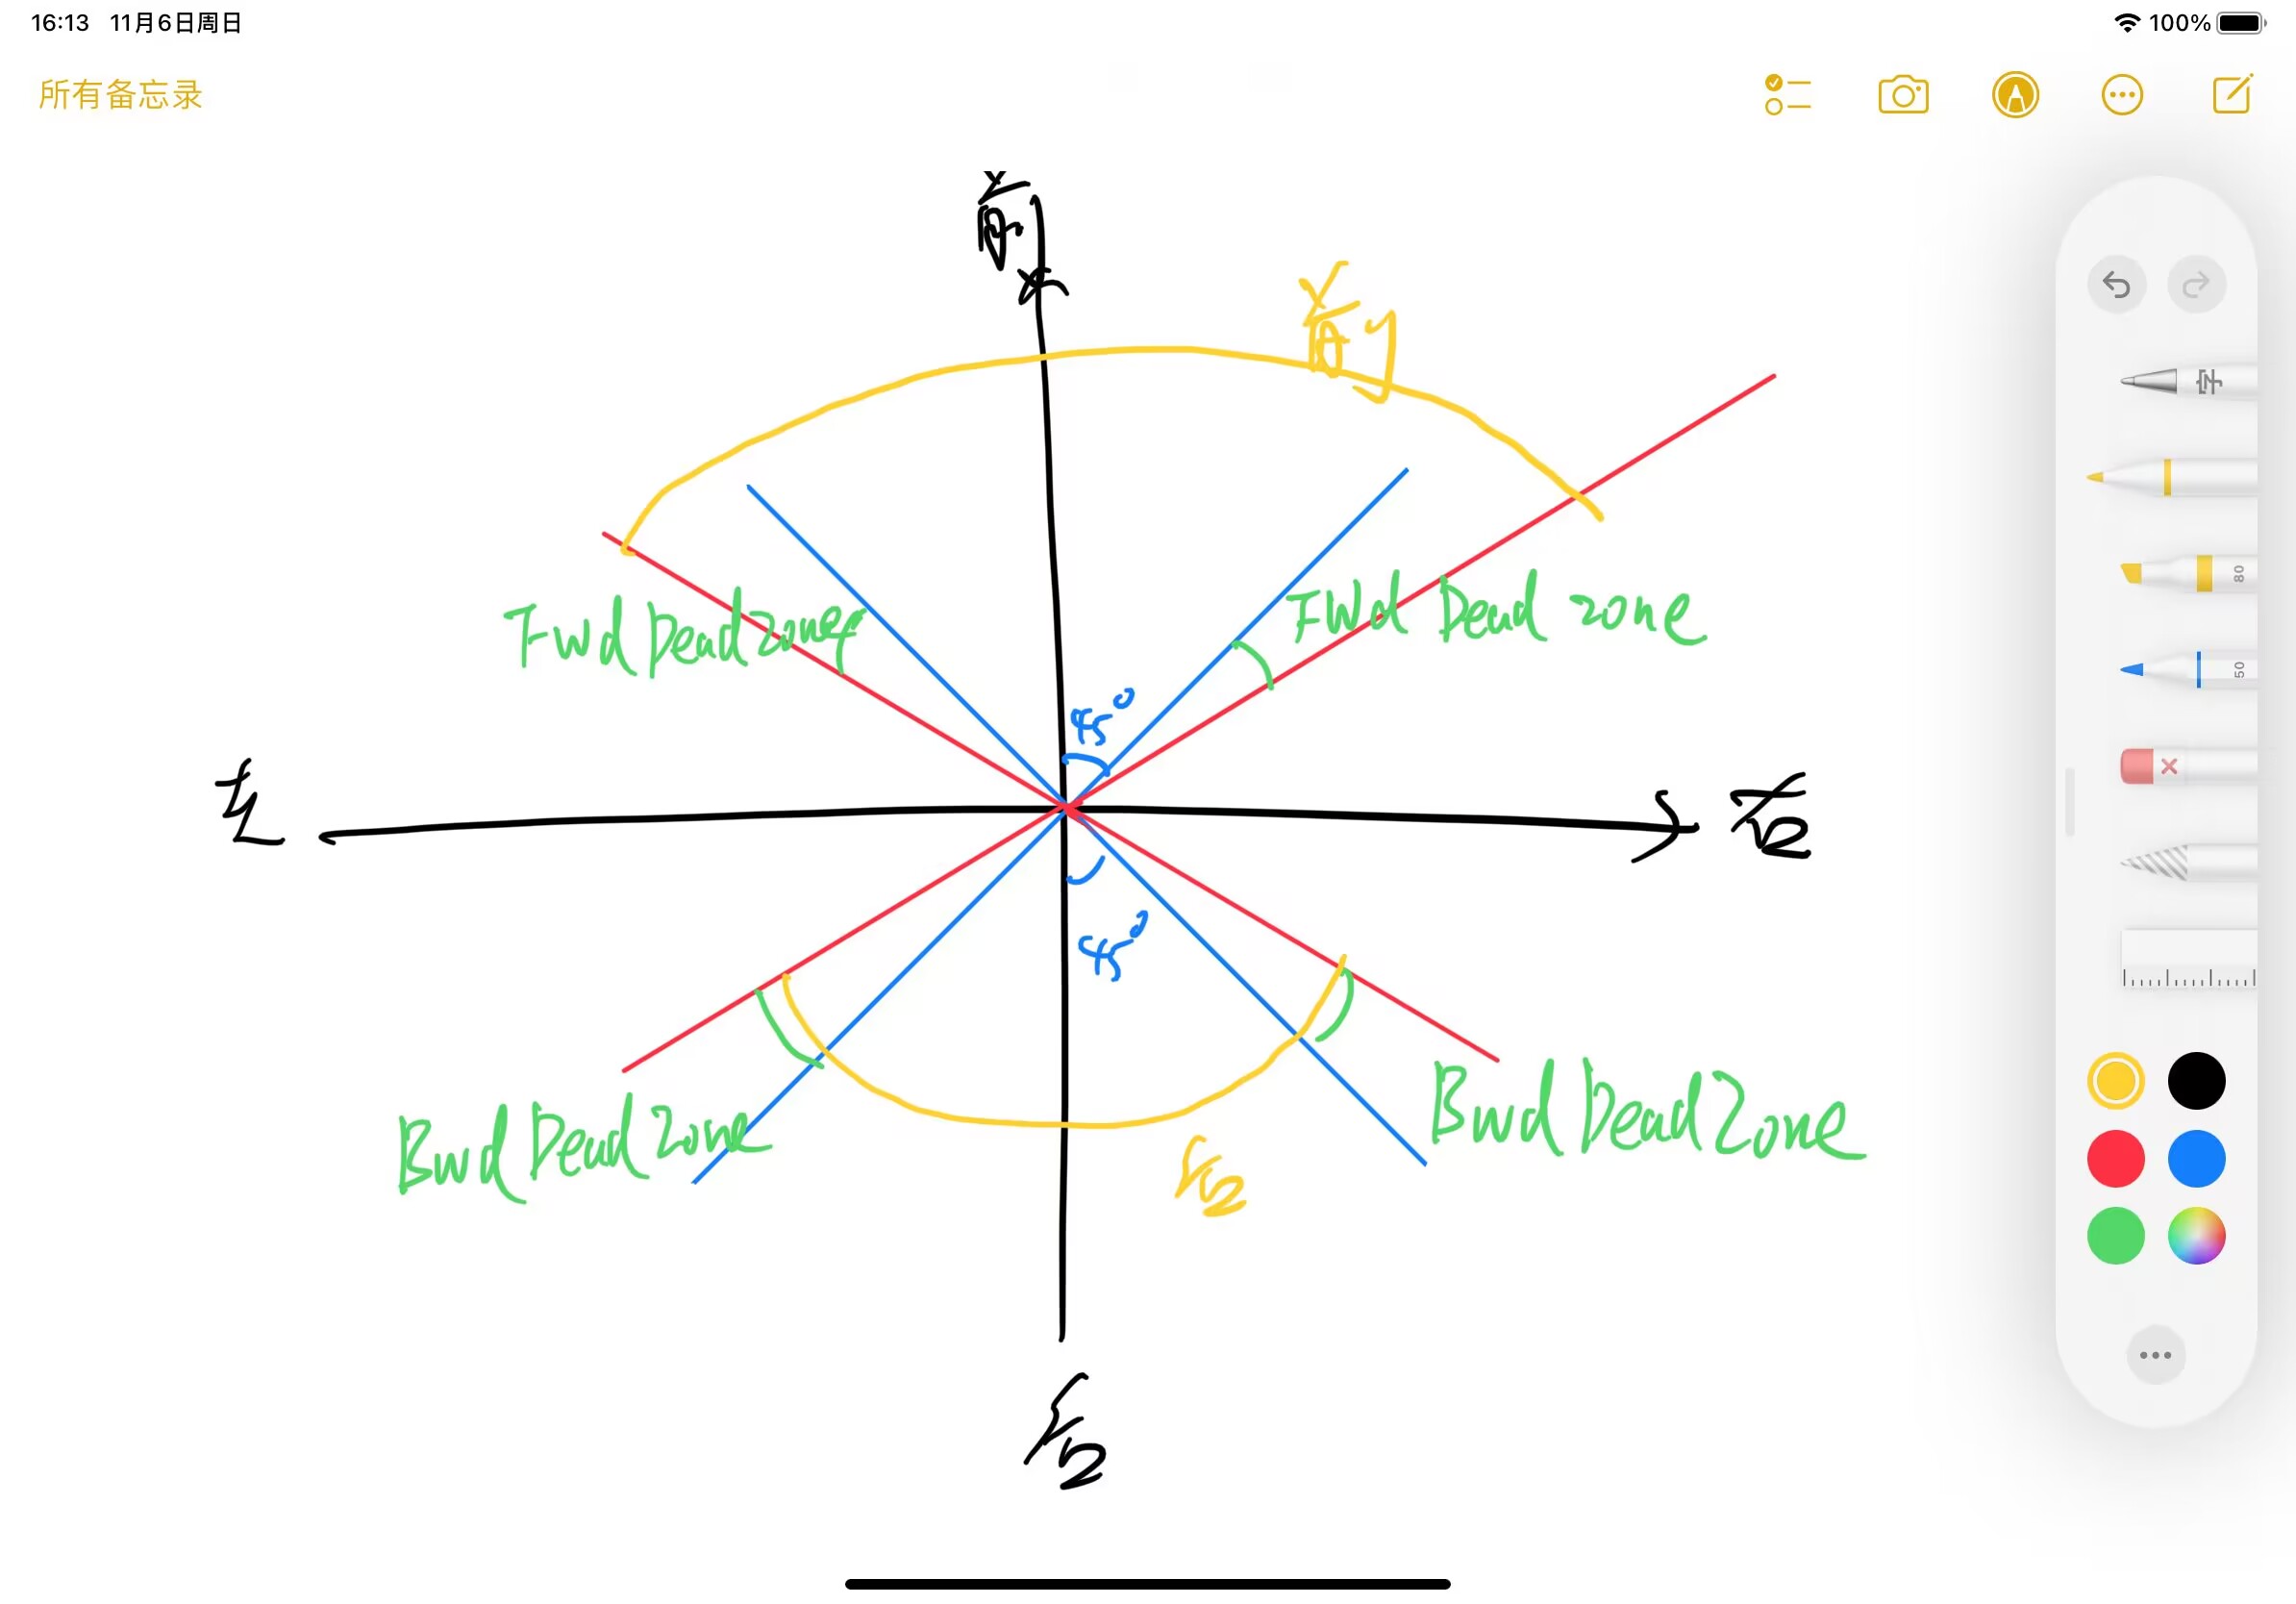 16:13 11月6日周日
100%
所有备忘录
前
前
字
80
50
Fwd Dead zone
FWd Dead zone
45°
左
右
45°
Bwd Dead Zone
Bwd Dead Zone
后
后